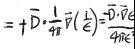 = + D⃗ · 1/4π ∇⃗ (1/ε) = -D⃗ · ∇⃗ε / 4πε²